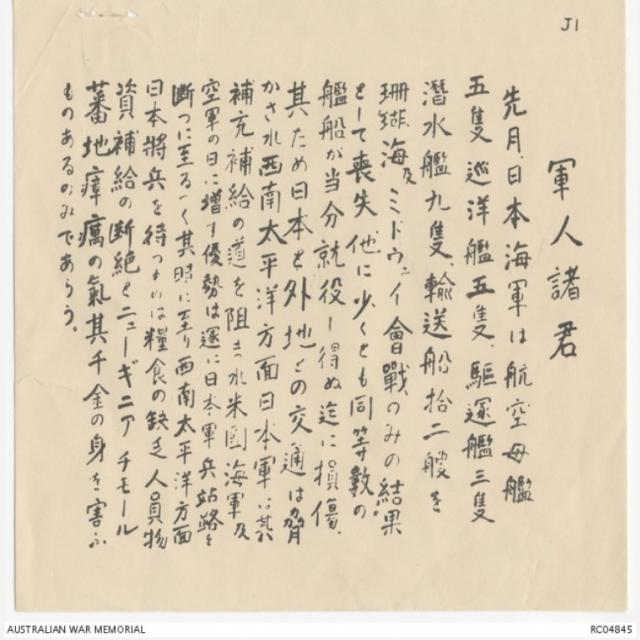 J1
軍人諸君
先月、日本海軍は航空母艦
五隻巡洋艦五隻、駆逐艦三隻
潜水艦九隻、輸送船拾二艘を
珊瑚海及ミドウェイ會戰のみの結果
として喪失他に少くとも同等数の
艦船が当分就役し得ぬ迄に損傷、
其ため日本と外地との交通は脅
かされ西南太平洋方面日本軍は其
補充補給の道を阻まれ米國海軍及
空軍の日に増す優勢は遂に日本軍兵站路を
断つに至るべく其時に至り西南太平洋方面
日本將兵を待つものは糧食の缺乏人員物
資補給の断絶とニューギニアチモール
蕃地瘴癘の氣其千金の身を害ふ
ものあるのみであらう。
AUSTRALIAN WAR MEMORIAL
RC04845